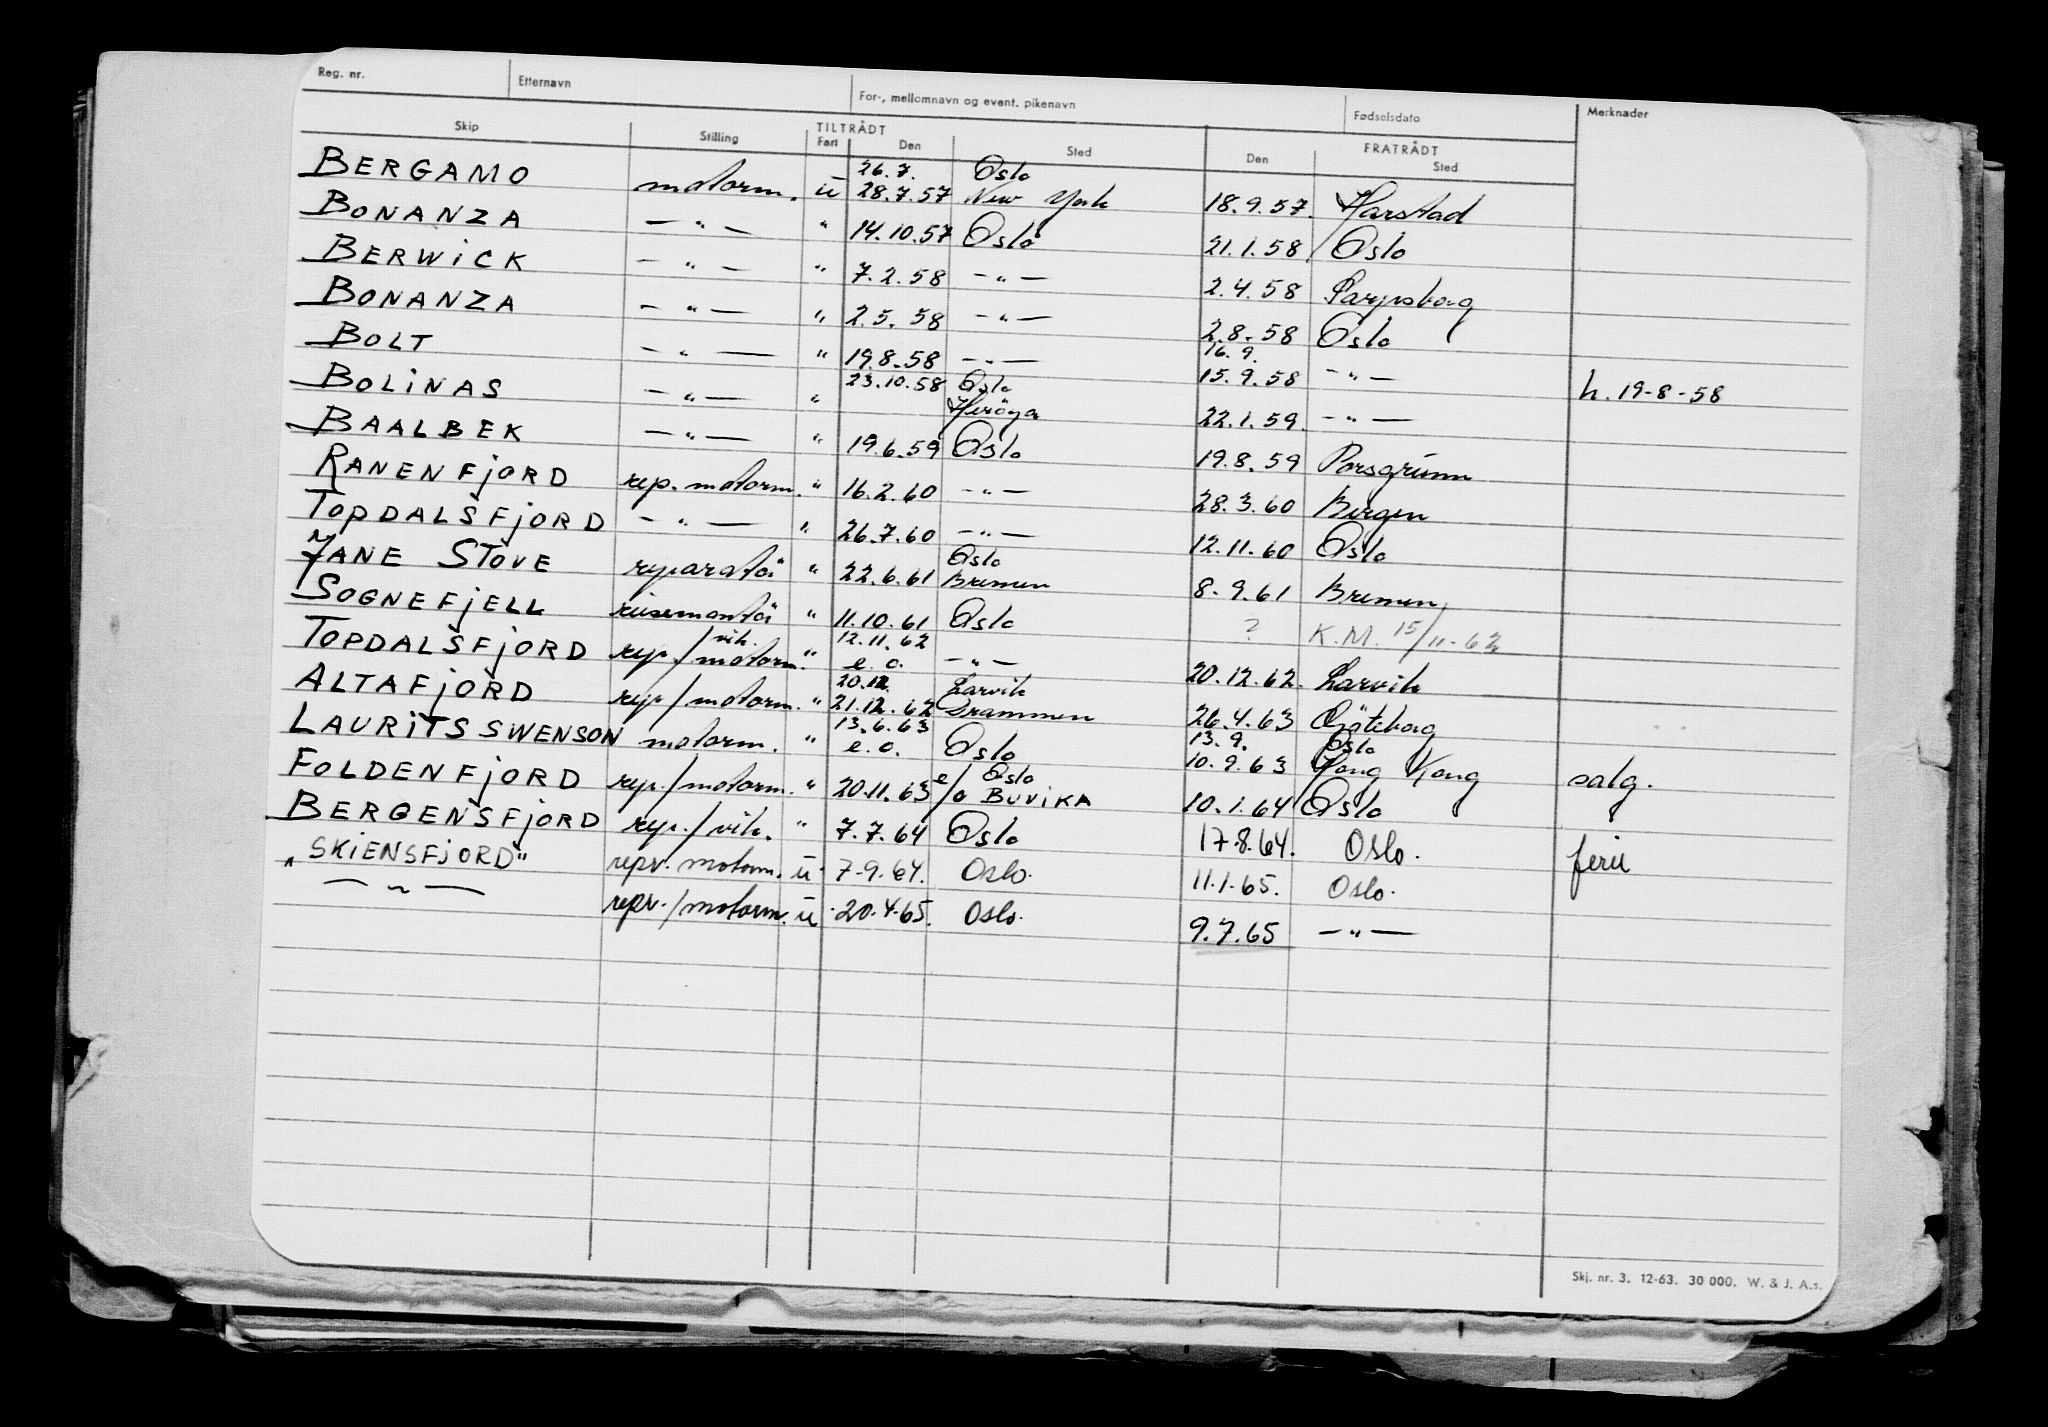 Reg. nr. Etternavn For-, mellomnavn og event. pikenavn Fødselsdato Merknader
Skip Stilling TILTRÅDT FRATRÅDT
Fart Den Sted Den Sted
26.7. Oslo
BERGAMO motorm. ü 28.7.57 New York 18.9.57. Harstad
BONANZA — " — " 14.10.57 Oslo 21.1.58 Oslo
BERWICK — " — " 7.2.58 — " — 2.4.58 Sarpsborg
BONANZA — " — " 2.5.58 — " — 2.8.58 Oslo
16.9.
BOLT — " — " 19.8.58 — " — 15.9.58 — " — h. 19-8-58
23.10.58 Oslo
BOLINAS — " — " Heröya 22.1.59. — " —
BAALBEK — " — " 19.6.59 Oslo 19.8.59 Porsgrunn
RANENFJORD rep. motorm. " 16.2.60 — " — 28.3.60 Bergen
TOPDALSFJORD — " — " 26.7.60 — " — 12.11.60 Oslo
Oslo
JANE STOVE reparatör " 22.6.61 Bremen 8.9.61 Bremen
SOGNEFJELL reisemontör " 11.10.61 Oslo ? K.M. 15/11-62
vik. 12.11.62
TOPDALSFJORD rep./motorm. " e.o. — " — 20.12.62. Larvik
20.12. Larvik
ALTAFJORD rep/motorm. " 21.12.62 Drammen 26.4.63 Göteborg
13.6.63 13.9. Oslo
LAURITS SWENSON motorm. " e.o. Oslo 10.9.63 Hong Kong salg.
Oslo
FOLDENFJORD rep./motorm. " 20.11.63 e/o BUVIKA 10.1.64 Oslo
BERGENSFJORD rep./vik. " 7.7.64 Oslo 17.8.64. Oslo. ferie
"SKIENSFJORD" repr. motorm. ü 7-9.64. Oslo. 11.1.65. Oslo.
— " — repr./motorm. ü 20.4.65. Oslo. 9.7.65 — " —
Skj. nr. 3. 12-63. 30 000. W. & J. A.s.